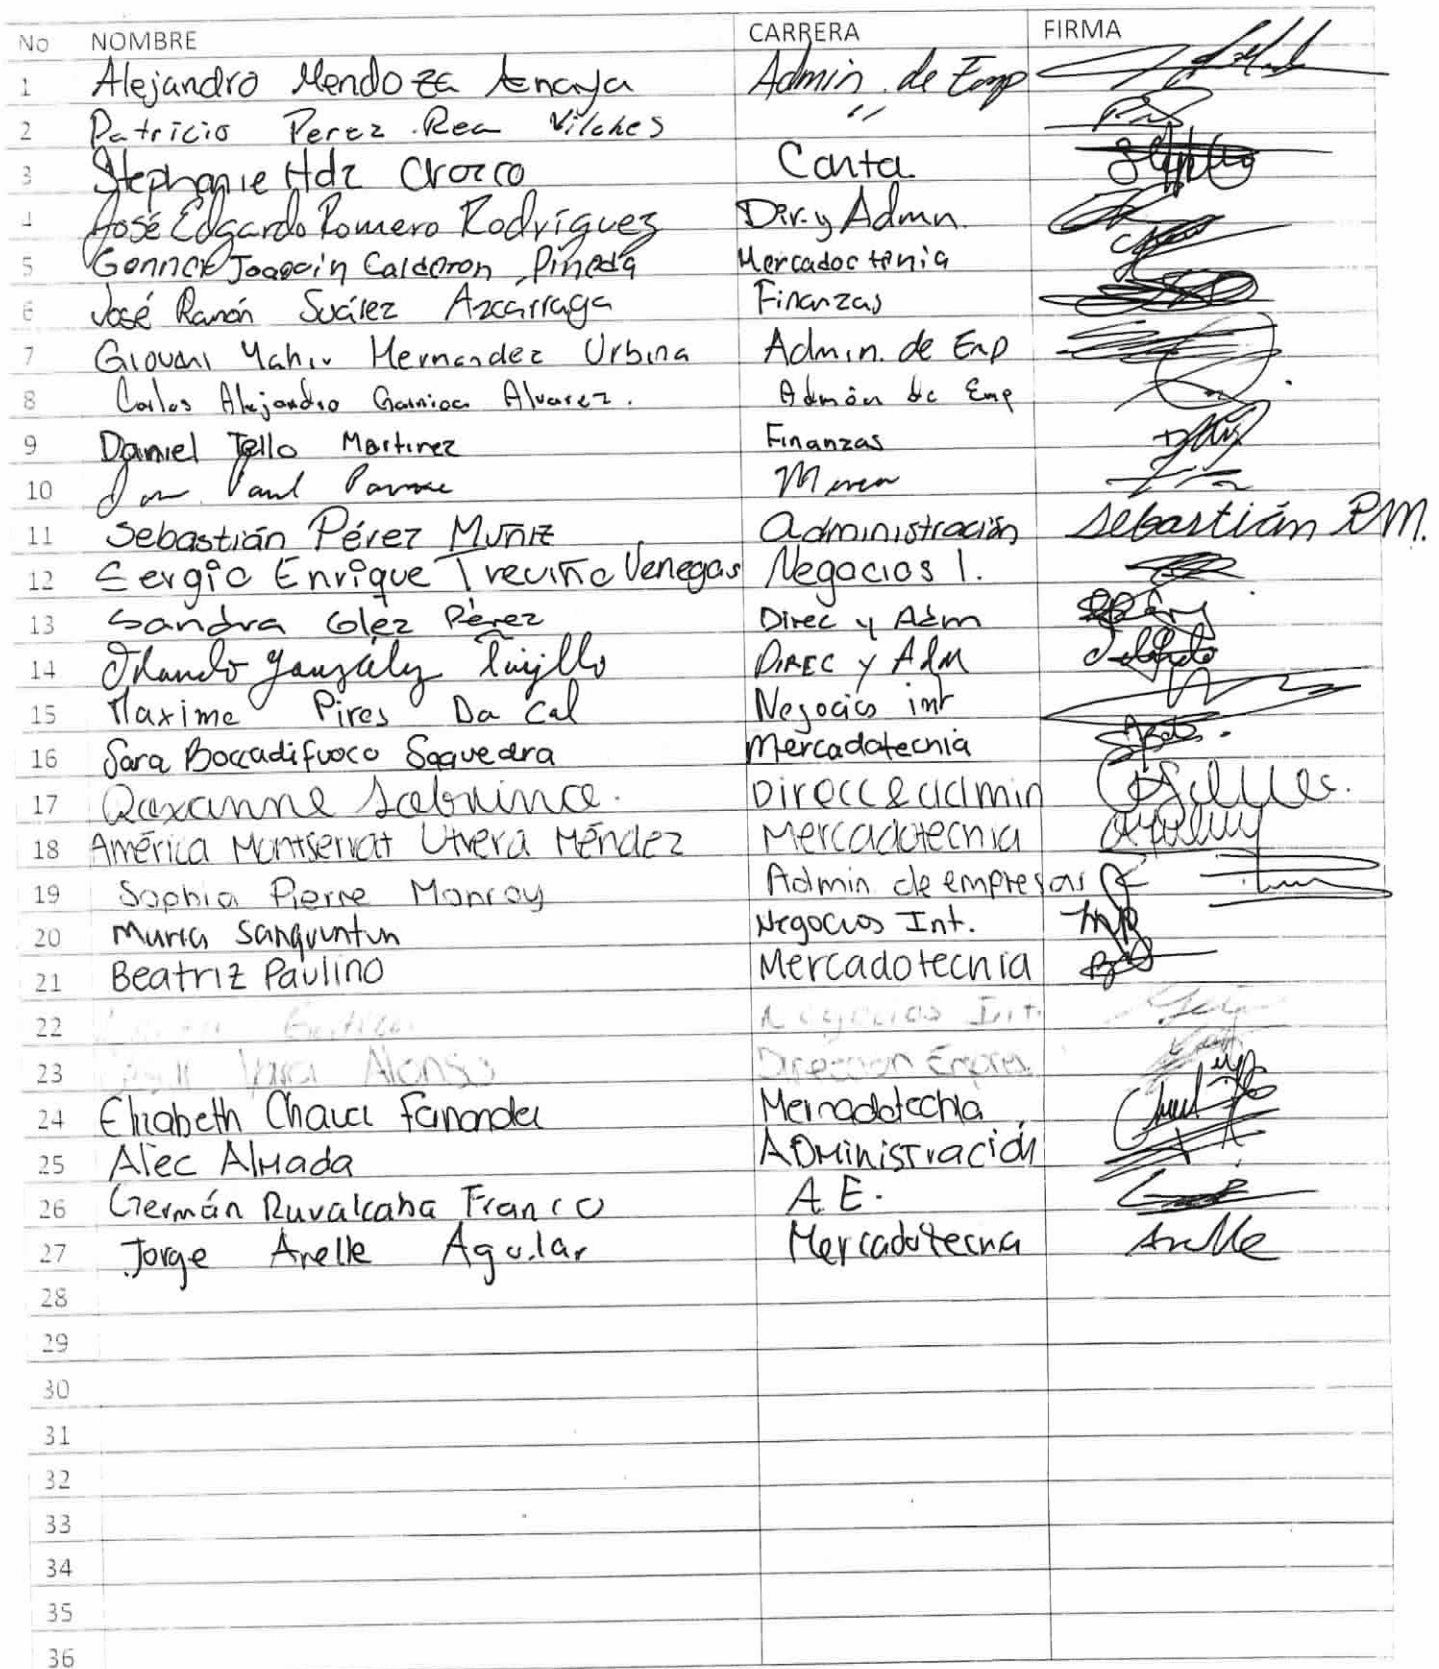 No NOMBRE CARRERA FIRMA
1 Alejandro Mendoza Anaya Admin. de Emp
2 Patricio Perez Rea Vilches "
3 Stephanie Hdz Orozco Conta.
4 José Edgardo Romero Rodríguez Dir. y Admn.
5 Joaquin Calderon Pineda Mercadoctenia
6 José Ramón Suárez Azcárraga Finanzas
7 Giovani Yahiv Hernandez Urbina Admin. de Emp
8 Carlos Alejandro Garnica Alvarez. Admón de Emp
9 Daniel Tello Martinez Finanzas
10 Paul
11 Sebastián Pérez Muñiz Administración Sebastián P.M.
12 Sergio Enrique Treviño Venegas Negocios I.
13 Sandra Glez Pérez Direc y Adm
14 Orlando González Trujillo Direc y Adm
15 Maxime Pires Da Cal Negocios int
16 Sara Boccadifuoco Saavedra Mercadotecnia
17 Roxanne Direcc & admin
18 América Montserrat Utrera Méndez Mercadotecnia
19 Sophia Pierre Monroy Admin de empresas
20 Sanquintin Negocios Int.
21 Beatriz Paulino Mercadotecnia
22 Negocios Int.
23 Alonso Direccion Empres.
24 Elizabeth
25 Alec Almada Administración
26 Germán Ruvalcaba Franco A.E.
27 Jorge Arelle Aguilar Mercadotecna Arelle
28
29
30
31
32
33
34
35
36